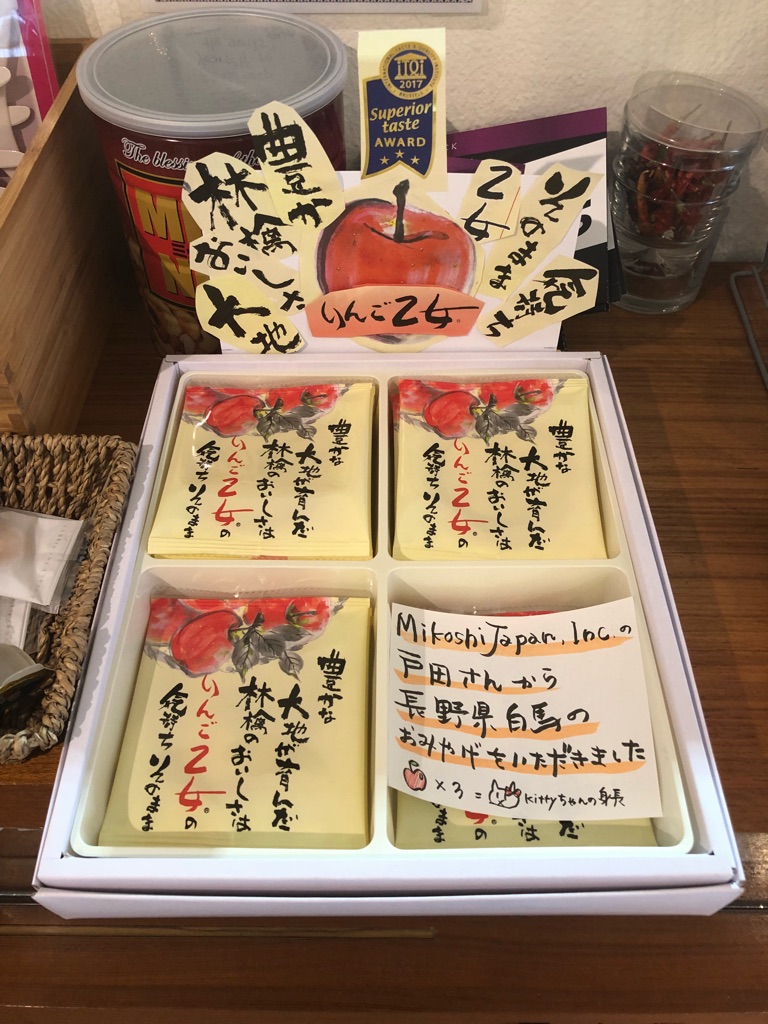 iTQi
2017
Superior
taste
AWARD
The blessi
豊か
林檎
おこした
大地
乙女
そのまま
気持ち
りんご乙女
豊かな
大地が育んだ
林檎のおいしさは
りんご乙女の
気持ちそのまま
豊かな
大地が育んだ
林檎のおいしさは
りんご乙女の
気持ちそのまま
豊かな
大地が育んだ
林檎のおいしさは
りんご乙女の
気持ちそのまま
Mikoshi Japan, Inc.の
戸田さんから
長野県白馬の
おみやげをいただきました
×3=
Kittyちゃんの身長